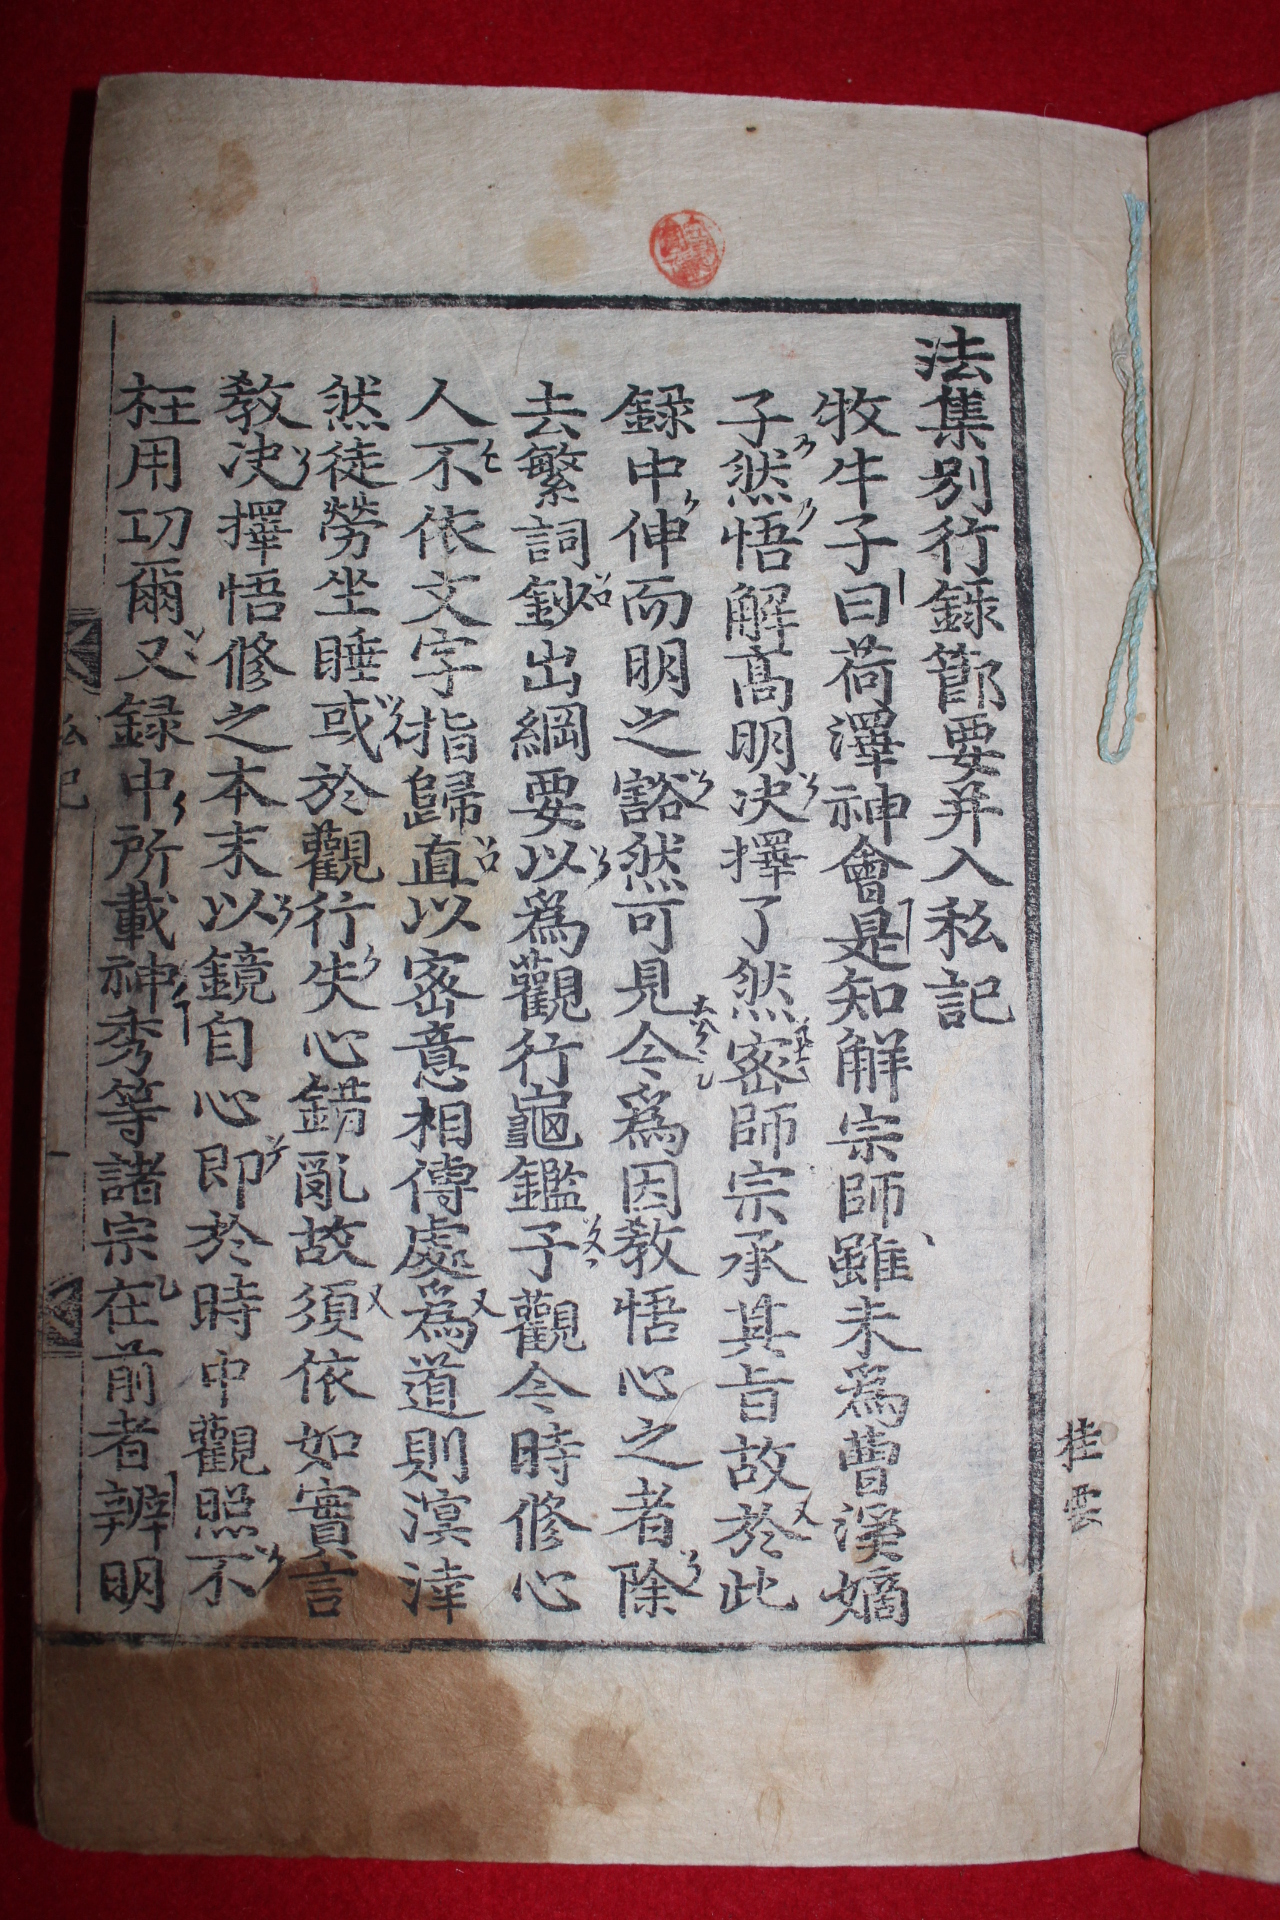 法集別行録節要幷入私記
牧牛子曰荷澤神會是知解宗師雖未爲曹溪嫡
子然悟解高明决擇了然密師宗承其旨故於此
録中伸而明之豁然可見今爲因教悟心之者除
去繁詞鈔出綱要以爲觀行龜鑑予觀今時修心
人不依文字指歸直以密意相傳處爲道則溟涬
然徒勞坐睡或於觀行失心錯亂故須依如實言
教决擇悟修之本末以鏡自心即於時中觀照不
枉用功爾又録中所載神秀等諸宗在前者辨明
私記
桂雲